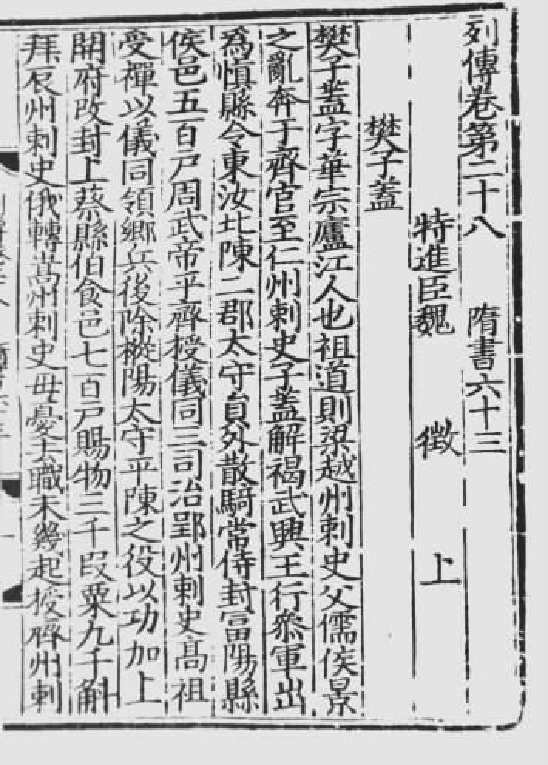 列傳卷第二十八 隋書六十三
特進臣魏 徵 上
樊子蓋
樊子蓋字華宗廬江人也祖道則梁越州刺史父儒侯景
之亂奔于齊官至仁州刺史子蓋解褐武興王行參軍出
爲慎縣令東汝北陳二郡太守員外散騎常侍封富陽縣
侯邑五百戸周武帝平齊授儀同三司治郢州刺史髙祖
受禪以儀同領鄉兵後除樅陽太守平陳之役以功加上
開府改封上蔡縣伯食邑七百戸賜物三千段粟九千斛
拜辰州刺史俄轉嵩州刺史毋憂去職未幾起授齊州刺